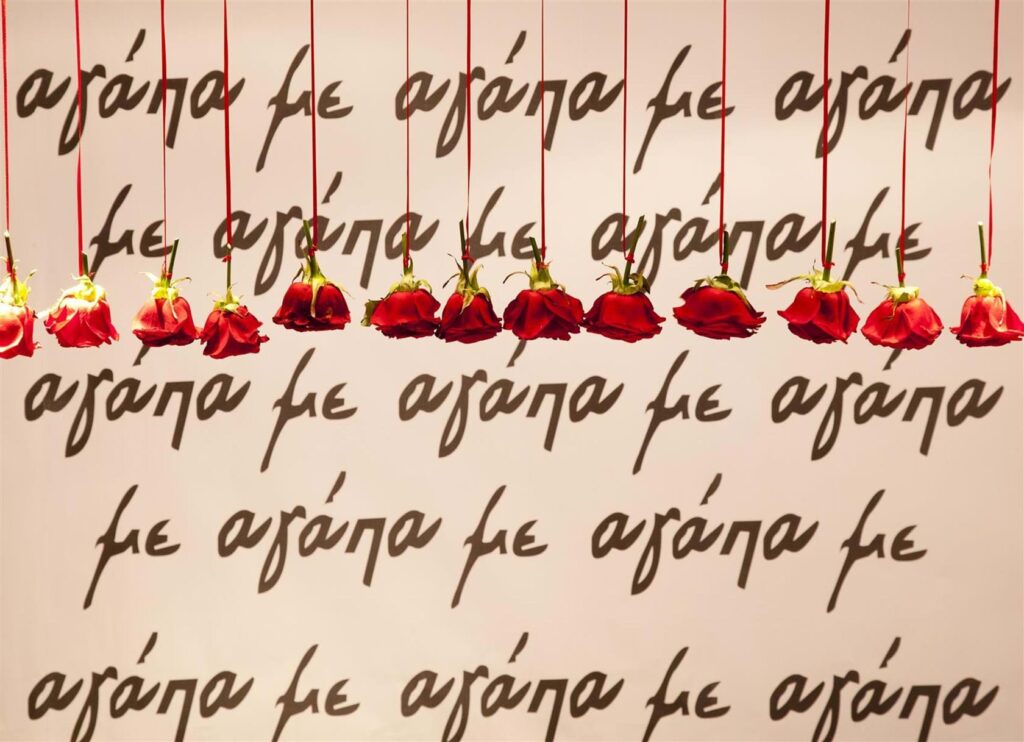 αγάπα με αγάπα με αγάπα
με αγάπα με αγάπα με
αγάπα με αγάπα με αγάπα
με αγάπα με αγάπα με
αγάπα με αγάπα με αγάπα